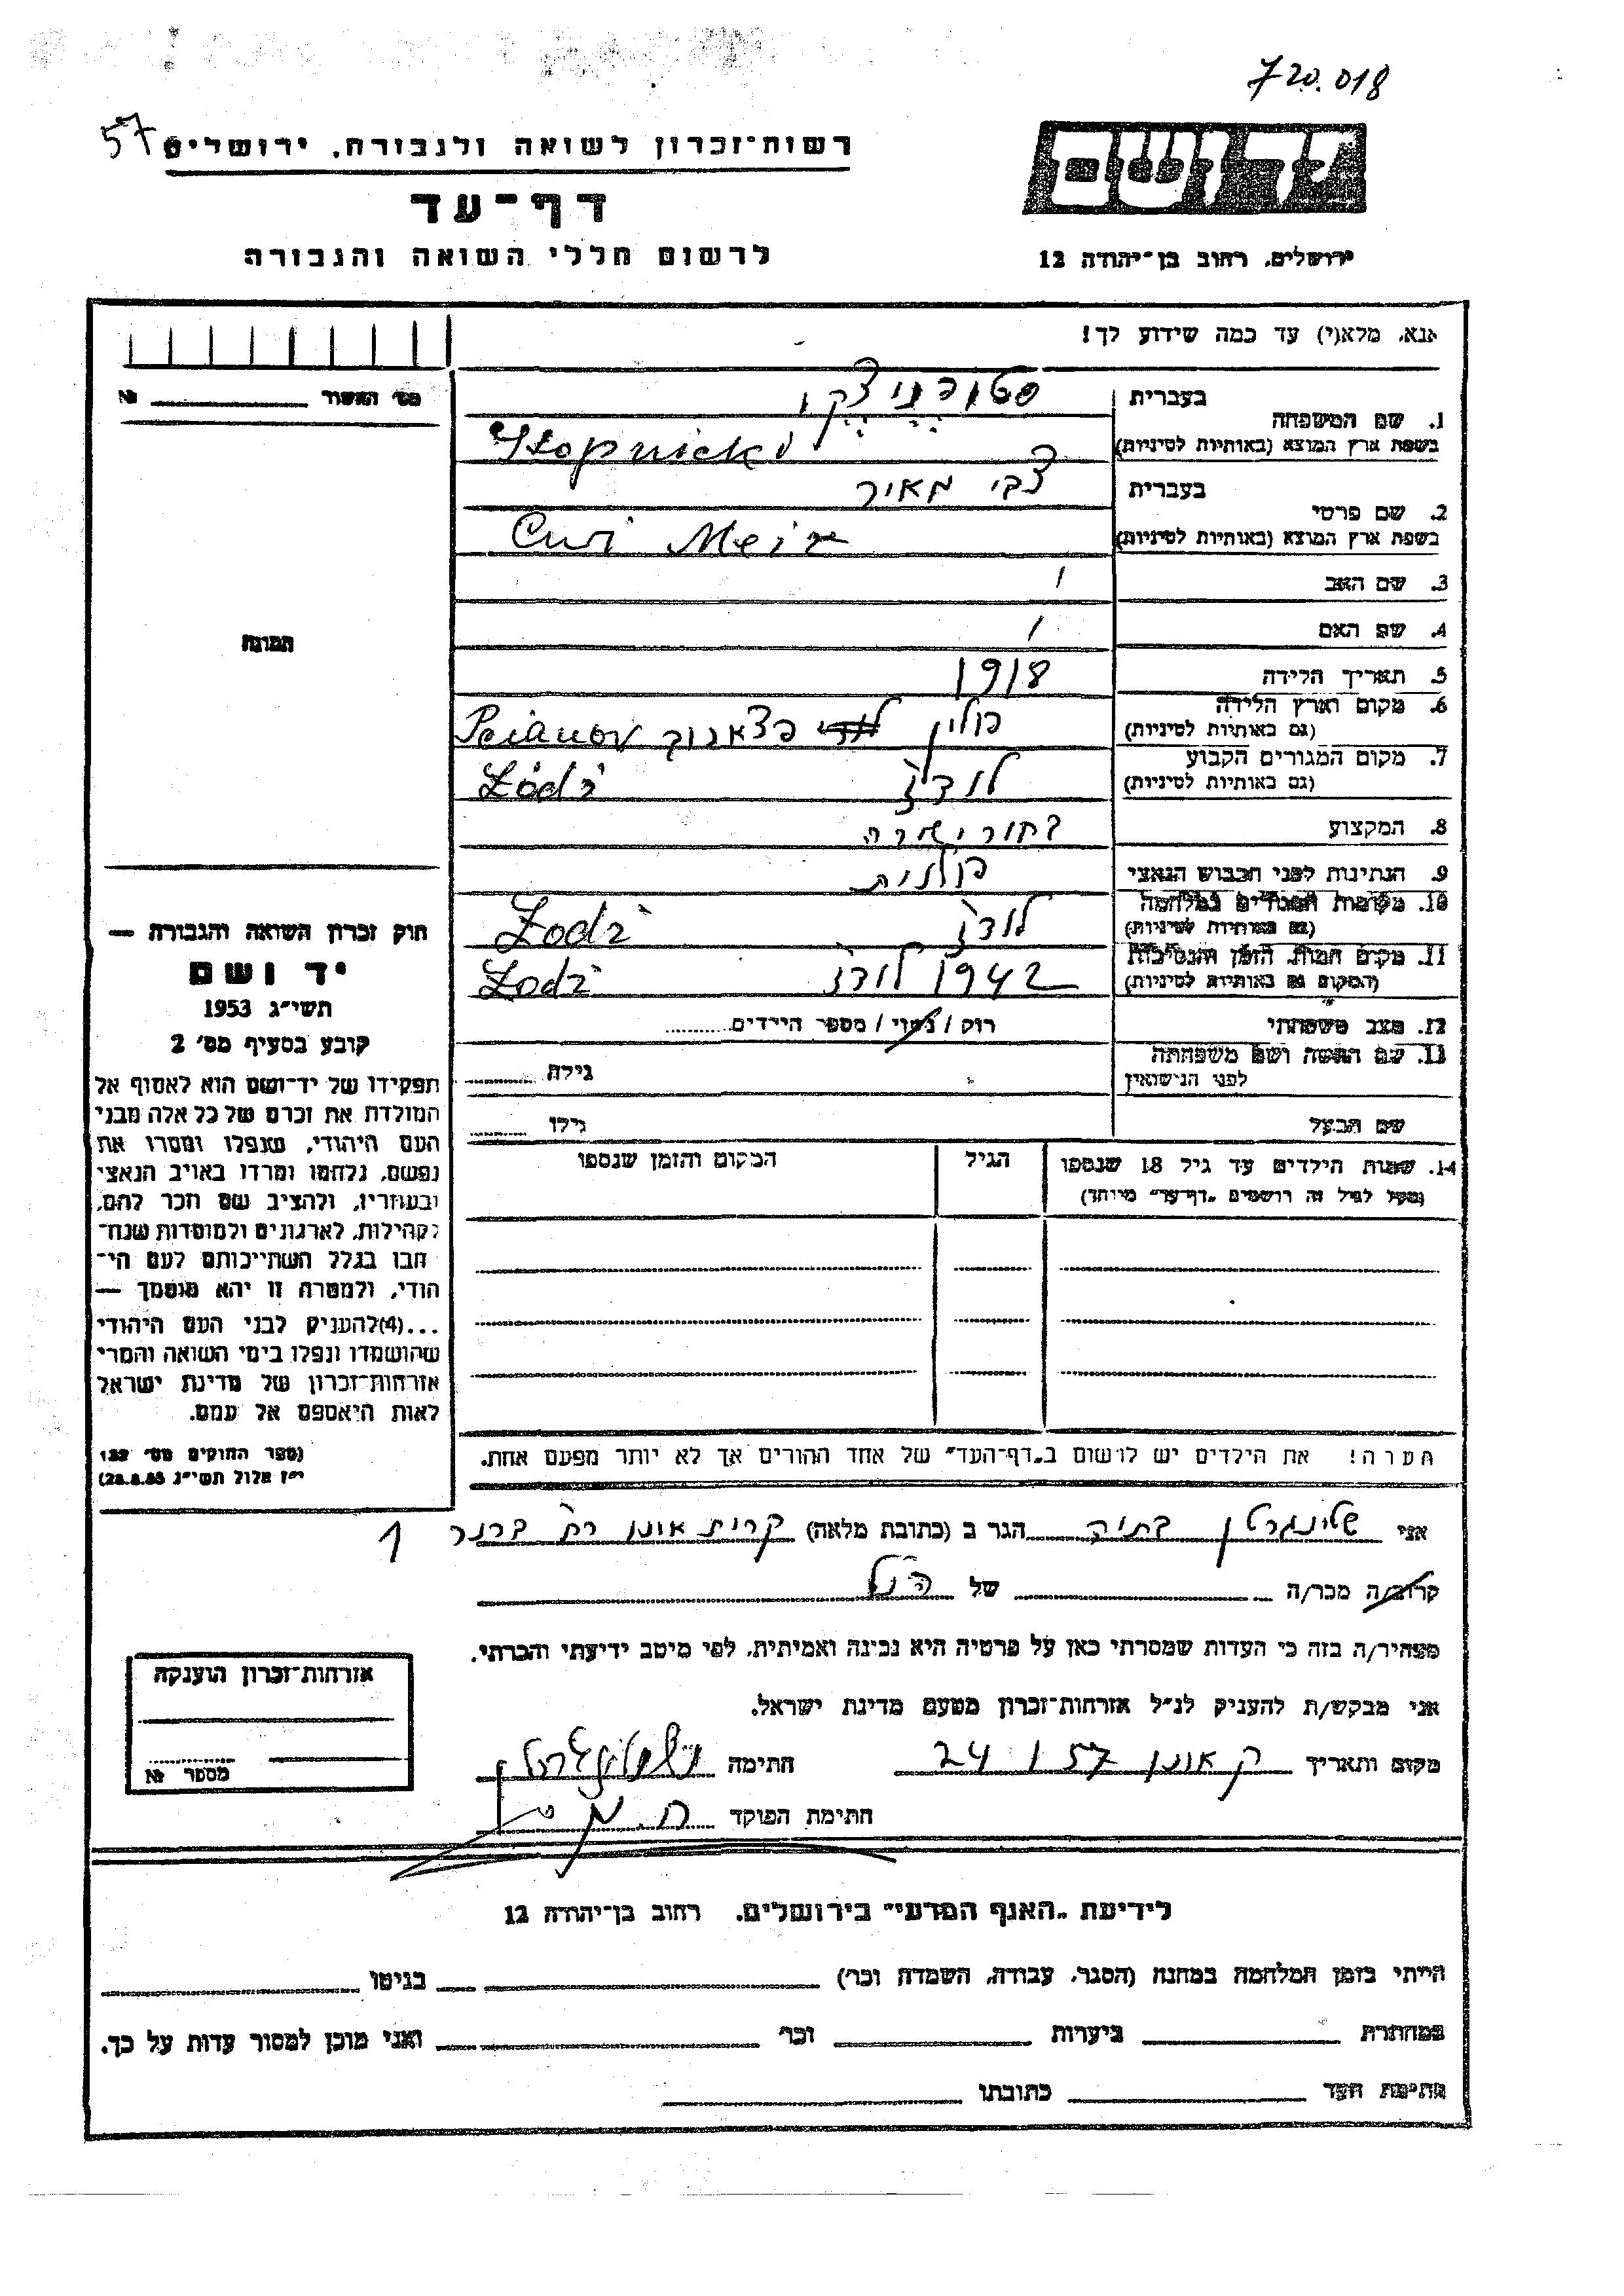 720.018
57
רשות־זכרון לשואה ולגבורה. ירושלים
דף־עד
לרשום חללי השואה והגבורה
ירושלים. רחוב בן־יהודה 12
אנא, מלא(י) עד כמה שידוע לך!
מס׳ האשור № 
1. שם המשפחה
בעברית
בשפת ארץ המוצא (באותיות לטיניות)
2. שם פרטי
בעברית צבי מאיר
בשפת ארץ המוצא (באותיות לטיניות) Cwi Meir
3. שם האב /
4. שם האם /
5. תאריך הלידה 1918
6. מקום וארץ הלידה פולין
(גם באותיות לטיניות) Pcianov
7. מקום המגורים הקבוע לודז
(גם באותיות לטיניות) Łódź
8. המקצוע בחור ישיבה
9. הנתינות לפני הכבוש הנאצי פולנית
10. מקומות המגורים במלחמה לודז
(גם באותיות לטיניות) Łodź
11. מקום המות, הזמן והנסיבות 1942 לודז
(המקום גם באותיות לטיניות) Łodź
12. מצב משפחתי רווק / נשוי / מספר הילדים
13. שם האשה ושם משפחתה
לפני הנישואין גילה
שם הבעל גילו
14. שמות הילדים עד גיל 18 שנספו הגיל המקום והזמן שנספו
(מעל לגיל זה רושמים „דף־עד" מיוחד)
הערה! את הילדים יש לרשום ב„דף־העד" של אחד ההורים אך לא יותר מפעם אחת.
תמונה
חוק זכרון השואה והגבורה —
יד ושם
תשי״ג 1953
קובע בסעיף מס׳ 2
תפקידו של יד־ושם הוא לאסוף אל
המולדת את זכרם של כל אלה מבני
העם היהודי, שנפלו ומסרו את
נפשם, נלחמו ומרדו באויב הנאצי
ובעוזריו, ולהציב שם וזכר להם,
לקהילות, לארגונים ולמוסדות שנח־
רבו בגלל השתייכותם לעם הי־
הודי, ולמטרה זו יהא מוסמך —
...(4)להעניק לבני העם היהודי
שהושמדו ונפלו בימי השואה והמרי
אזרחות־זכרון של מדינת ישראל
לאות היאספם אל עמם.
(ספר החוקים מס׳ 132
י״ז אלול תשי״ג
אני בתיה הגר ב (כתובת מלאה) קרית אונו רח ברנר 1
קרוב/ה מכר/ה של הנ״ל
מצהיר/ה בזה כי העדות שמסרתי כאן על פרטיה היא נכונה ואמיתית, לפי מיטב ידיעתי והכרתי.
אני מבקש/ת להעניק לנ״ל אזרחות־זכרון מטעם מדינת ישראל.
מקום ותאריך ק אונו 24 1 57 חתימה
חתימת הפוקד
אזרחות־זכרון הוענקה
מספר №
לידיעת „האגף המדעי" בירושלים. רחוב בן־יהודה 12
הייתי בזמן המלחמה במחנה (הסגר, עבודה, השמדה וכו׳) בגיטו
במחתרת ביערות וכו׳ ואני מוכן למסור עדות על כך.
חתימת העד כתובתו